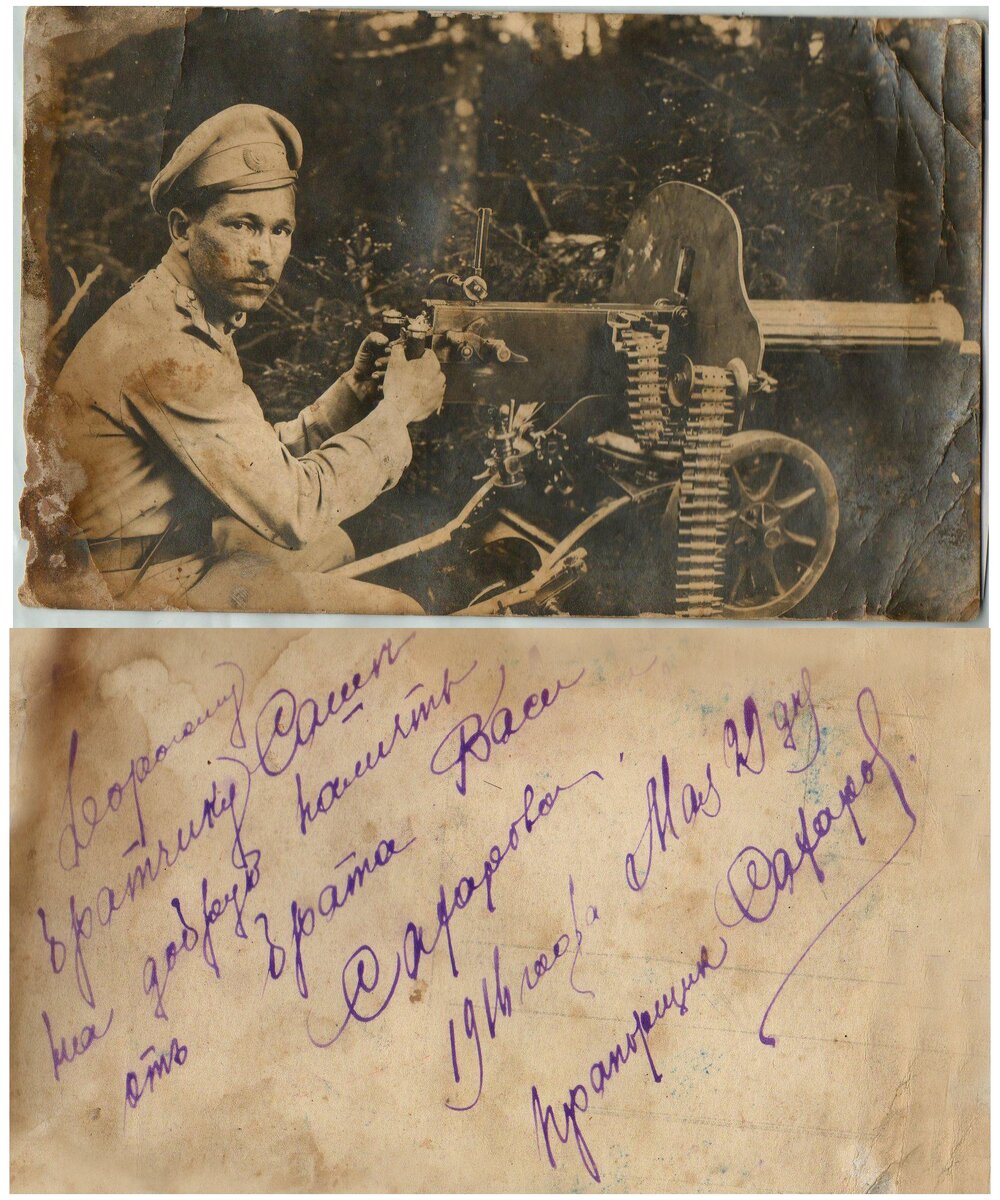 Дорогому
братчику Сашѣ
на добрую память
отъ брата Васи
Сафарова
1916 года Мая 29 дня
прапорщик Сафаров.